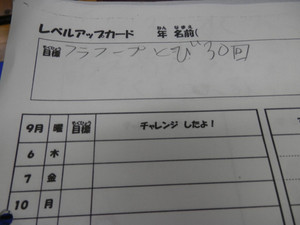 レベルアップカード 年 名前(
目標 フラフープとび30回
9月 曜 目標 チャレンジ したよ!
6 木
7 金
10 月